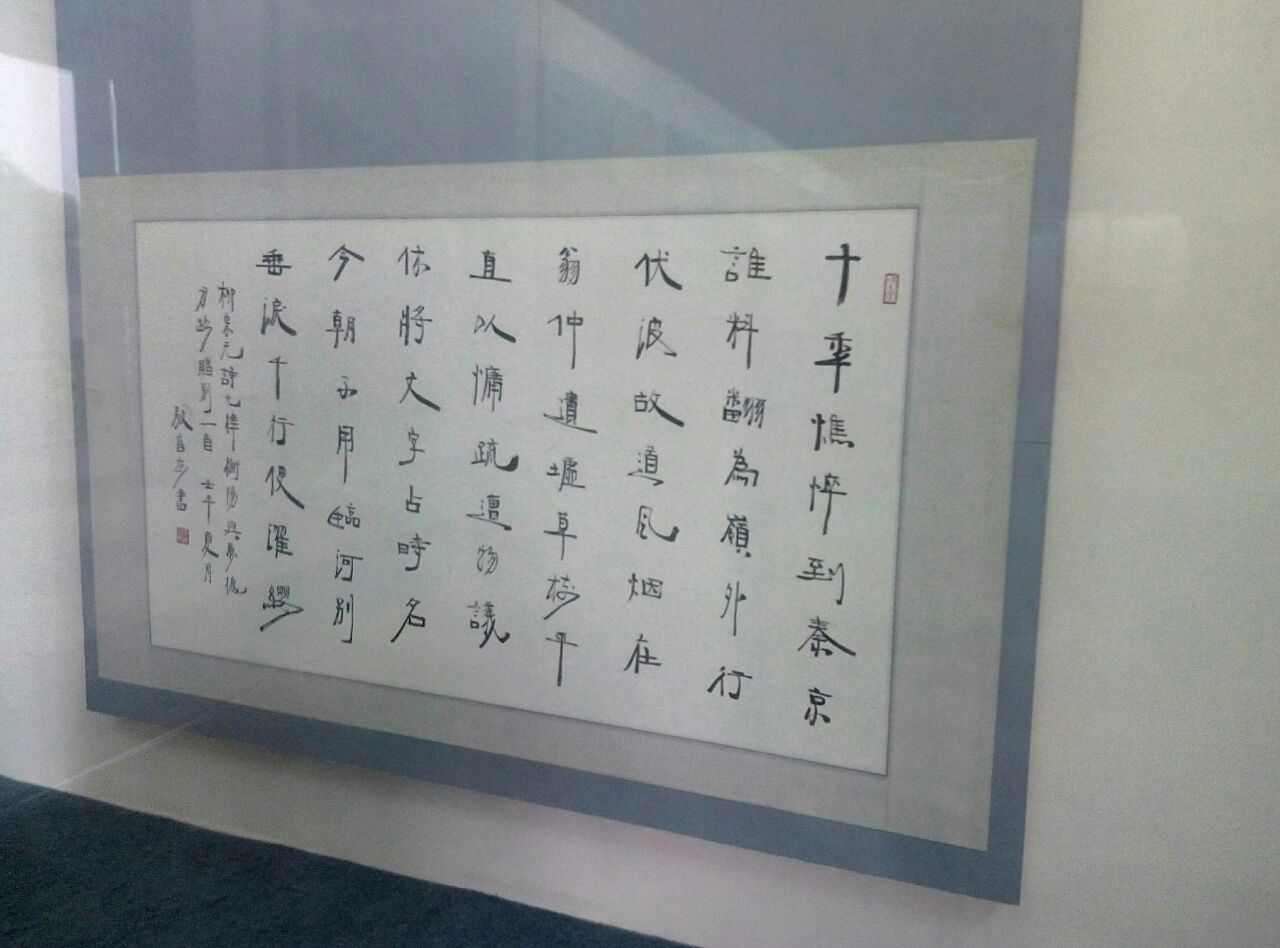 十年憔悴到秦京
誰料翻為嶺外行
伏波故道風烟在
翁仲遺墟草樹平
直以慵疏遭物議
休將文字占時名
今朝不用臨河別
垂淚千行便濯纓
柳宗元詩七律衡陽與夢得
分路臨別一首 壬午夏月
書